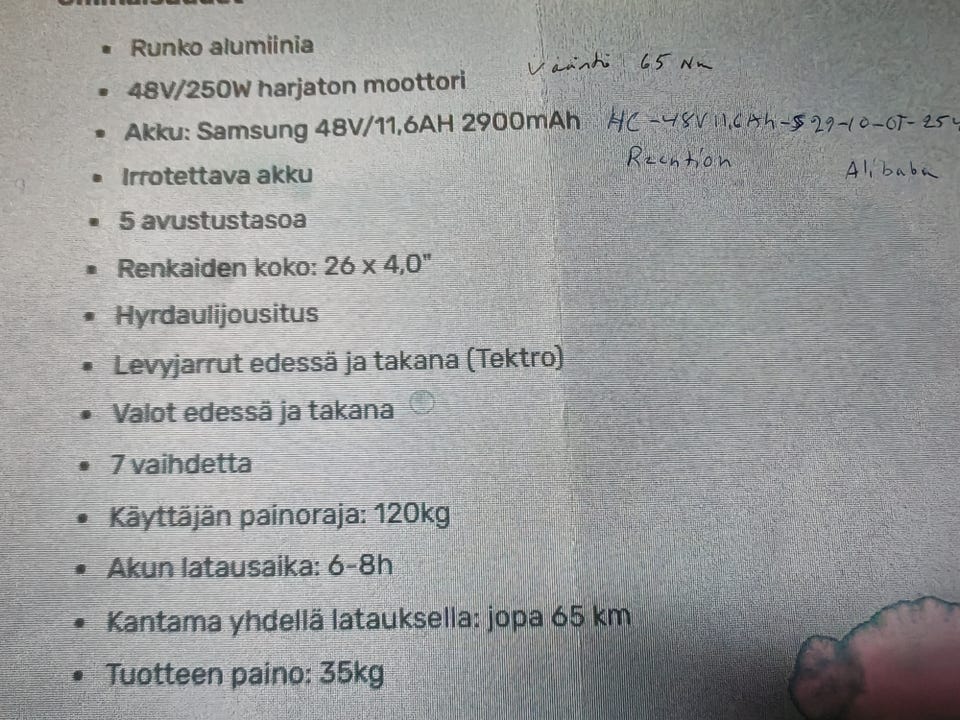 Runko alumiinia
48V/250W harjaton moottori
Vääntö 65 Nm
Akku: Samsung 48V/11,6AH 2900mAh
HC-48V11,6Ah-S29-10-OT-25
Irrotettava akku
Alibaba
5 avustustasoa
Renkaiden koko: 26 x 4,0"
Hyrdaulijousitus
Levyjarrut edessä ja takana (Tektro)
Valot edessä ja takana
7 vaihdetta
Käyttäjän painoraja: 120kg
Akun latausaika: 6-8h
Kantama yhdellä latauksella: jopa 65 km
Tuotteen paino: 35kg